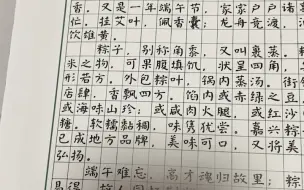 香。又是一年端午节，家家户户诸事
忙。挂艾叶，佩香囊；龙舟竞渡
饮雄黄。
粽子，别称角黍，又叫裹蒸。
米之物，可果腹填饥。状呈四角
形若方。外包粽叶，锅内蒸汤。街
店肆，香飘四方。馅内或赤绿之豆
或海味山珍；或咸肉火腿，或红沙
糖。软糯黏稠，味隽犹尝。嘉兴粽
已成地方品牌，美味可口，又将美
弘扬。
端午难忘，高才魂归故里；粽